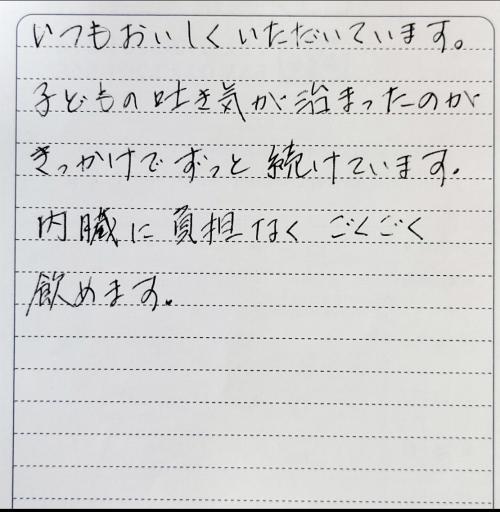 いつもおいしくいただいています。
子どもの吐き気が治まったのが
きっかけでずっと続けています。
内臓に負担なくごくごく
飲めます。